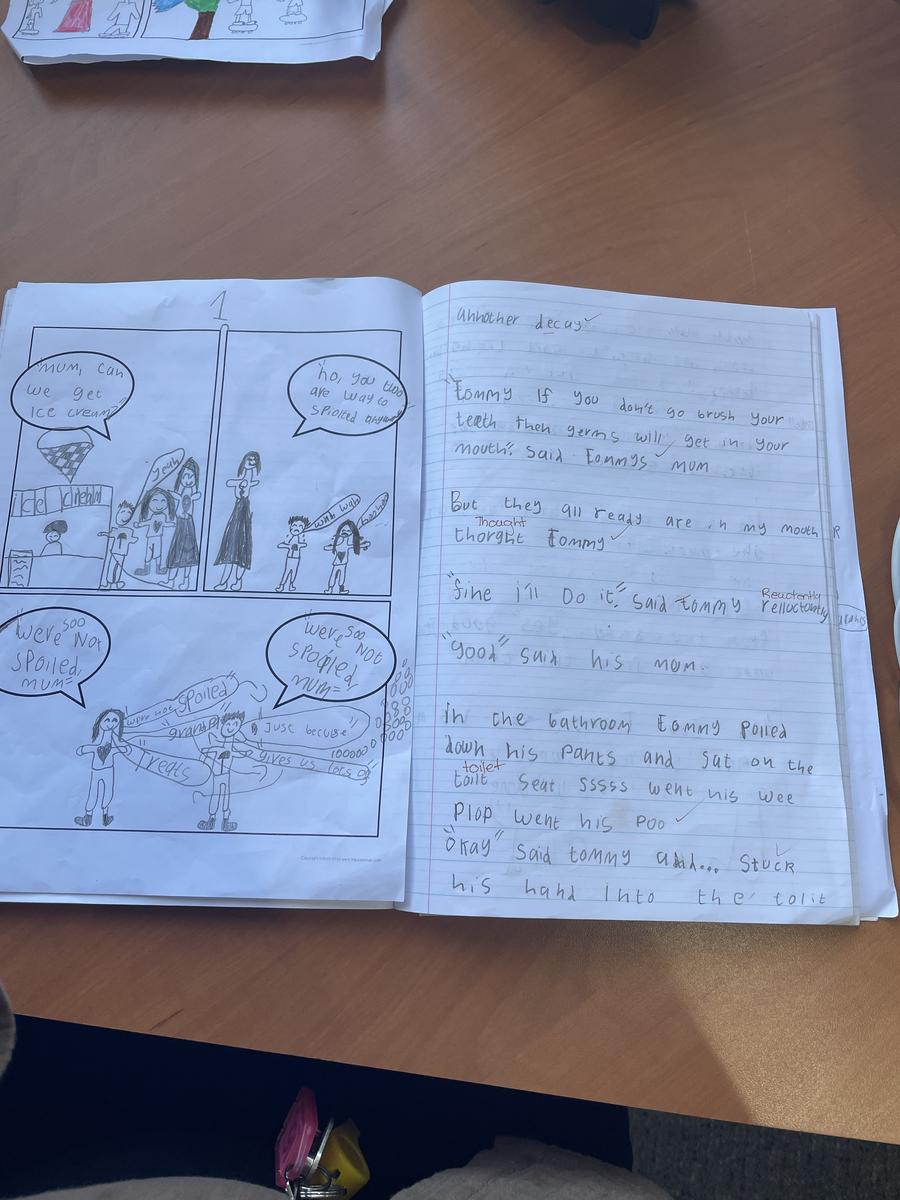 1
"Mum, can
we get
Ice cream?"
yeah
ice cream
"no, you two
are way to
spoiled anyway"
wah wah
"were soo Not
spoiled,
mum"
"were soo Not
spoiled,
mum"
were not spoiled
grandpa
Just becuise
gives us lots of
100000
Treats
anhother decay ✓
"Tommy If you don't go brush your
teeth then germs will get in your
mouth". said Tommys mum
But they all ready are in my mouth
Thought
thorght Tommy ✓
"fine i'll Do it". said tommy relluctantly
Reluctently
"good" said his mum.
in the bathroom Tommy polled
down his pants and sat on the
toilet
toilt seat sssss went his wee
Plop went his Poo ✓
"okay" said tommy and... stuck
his hand Into the tolit